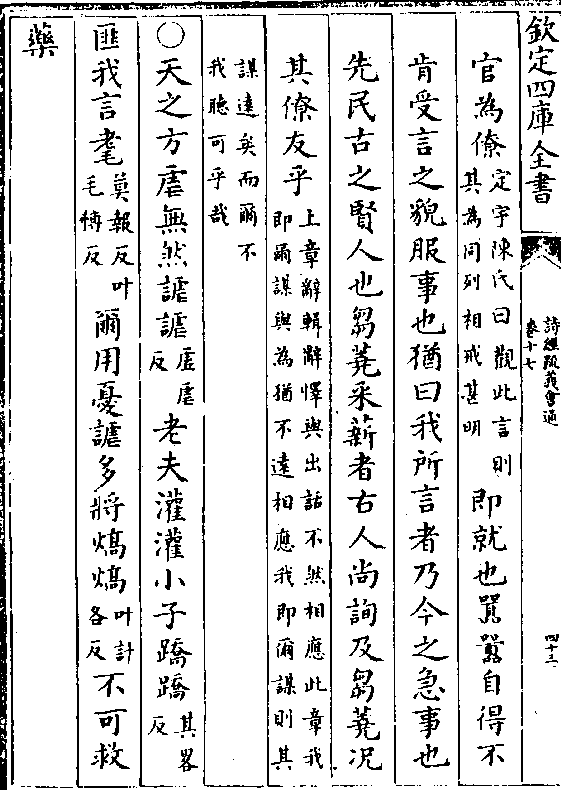 欽定四庫全書
詩經疏義會通
卷十七
四十三
官為僚定宇陳氏曰觀此言則其為同列相戒甚明即就也嚻嚻自得不
肯受言之貌服事也猶曰我所言者乃今之急事也
先民古之賢人也芻蕘采薪者古人尚詢及芻蕘况
其僚友乎上章辭輯辭懌與出話不然相應此章我即爾謀與為猶不逺相應我即爾謀則其
謀逺矣而爾不我聽可乎哉
○天之方虐無然謔謔虚虐反老夫灌灌小子蹻蹻其畧反
匪我言耄莫報反叶毛博反爾用憂謔多將熇熇叶許各反不可救
藥